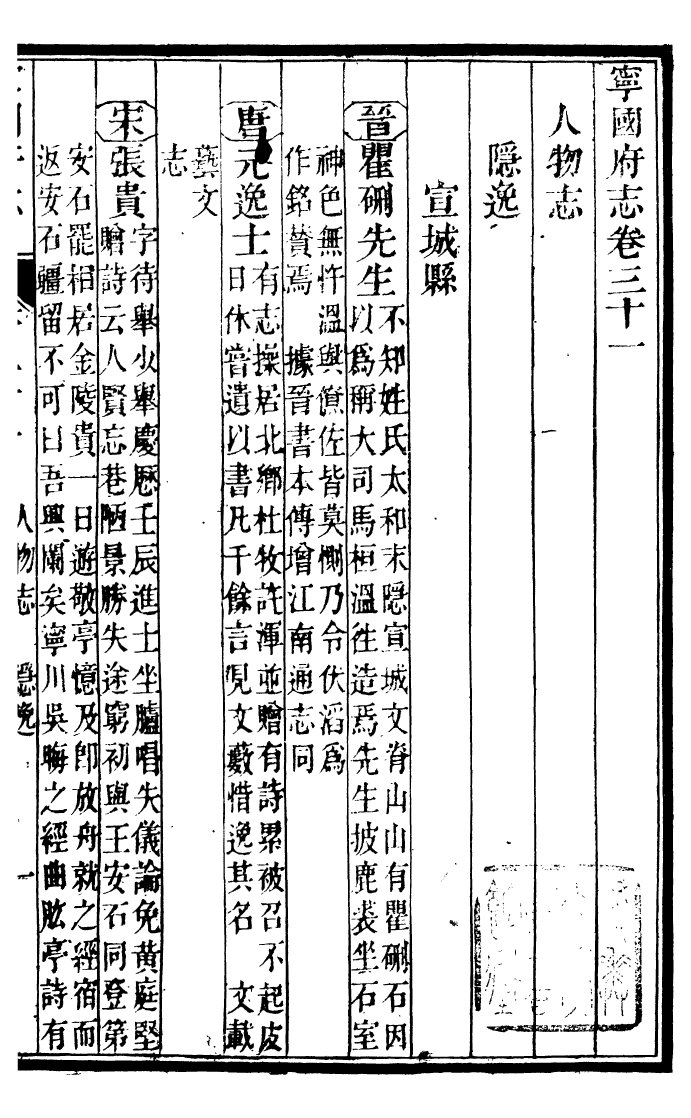 寧國府志卷三十一
人物志
隱逸
宣城縣
晉瞿硎先生不知姓氏太和末隱宣城文脊山山有瞿硎石因
以爲稱大司馬桓溫往造焉先生披鹿裘坐石室
神色無忤溫與僚佐皆莫惻乃令伏滔爲
作銘贊焉 據晉書本傳增江南通志同
唐元逸士有志操居北鄉杜牧許渾並贈有詩累被召不起皮
日休嘗遺以書凡千餘言見文藪惜逸其名 文載
藝文
志
宋張貴字待舉少舉慶歷壬辰進士坐臚唱失儀論免黃庭堅
贈詩云人賢忘巷陋景勝失途窮初與王安石同登第
安石罷相居金陵貴一日遊敬亭憶及卽放舟就之經宿而
返安石疆留不可曰吾興闌矣寧川吳晦之經曲肱亭詩有
人物志 隱逸 一